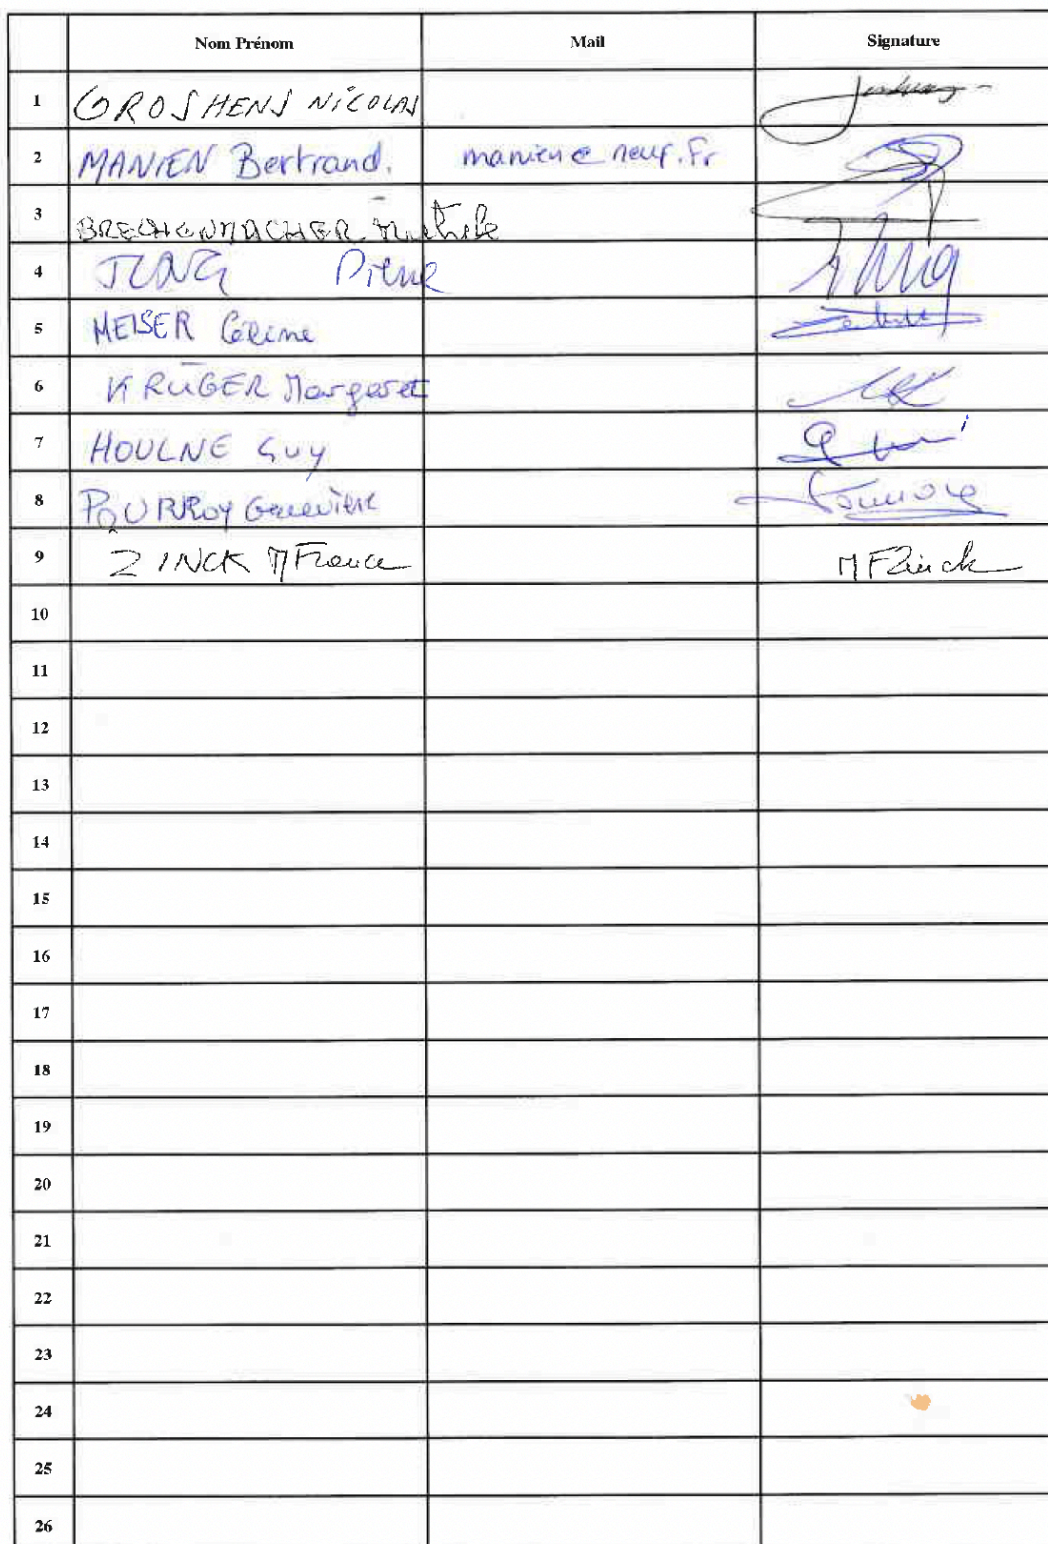 Nom Prénom Mail Signature
1 GROSHENS NICOLAS
2 MANIEN Bertrand. manien@neuf.fr
3 BRECHENMACHER Michèle
4 JUNG Pierre Jung
5 MEISER Céline
6 KRÜGER Margaret
7 HOULNE Guy
8 POURROY Geneviève
9 ZINCK M France M FZinck
10
11
12
13
14
15
16
17
18
19
20
21
22
23
24
25
26